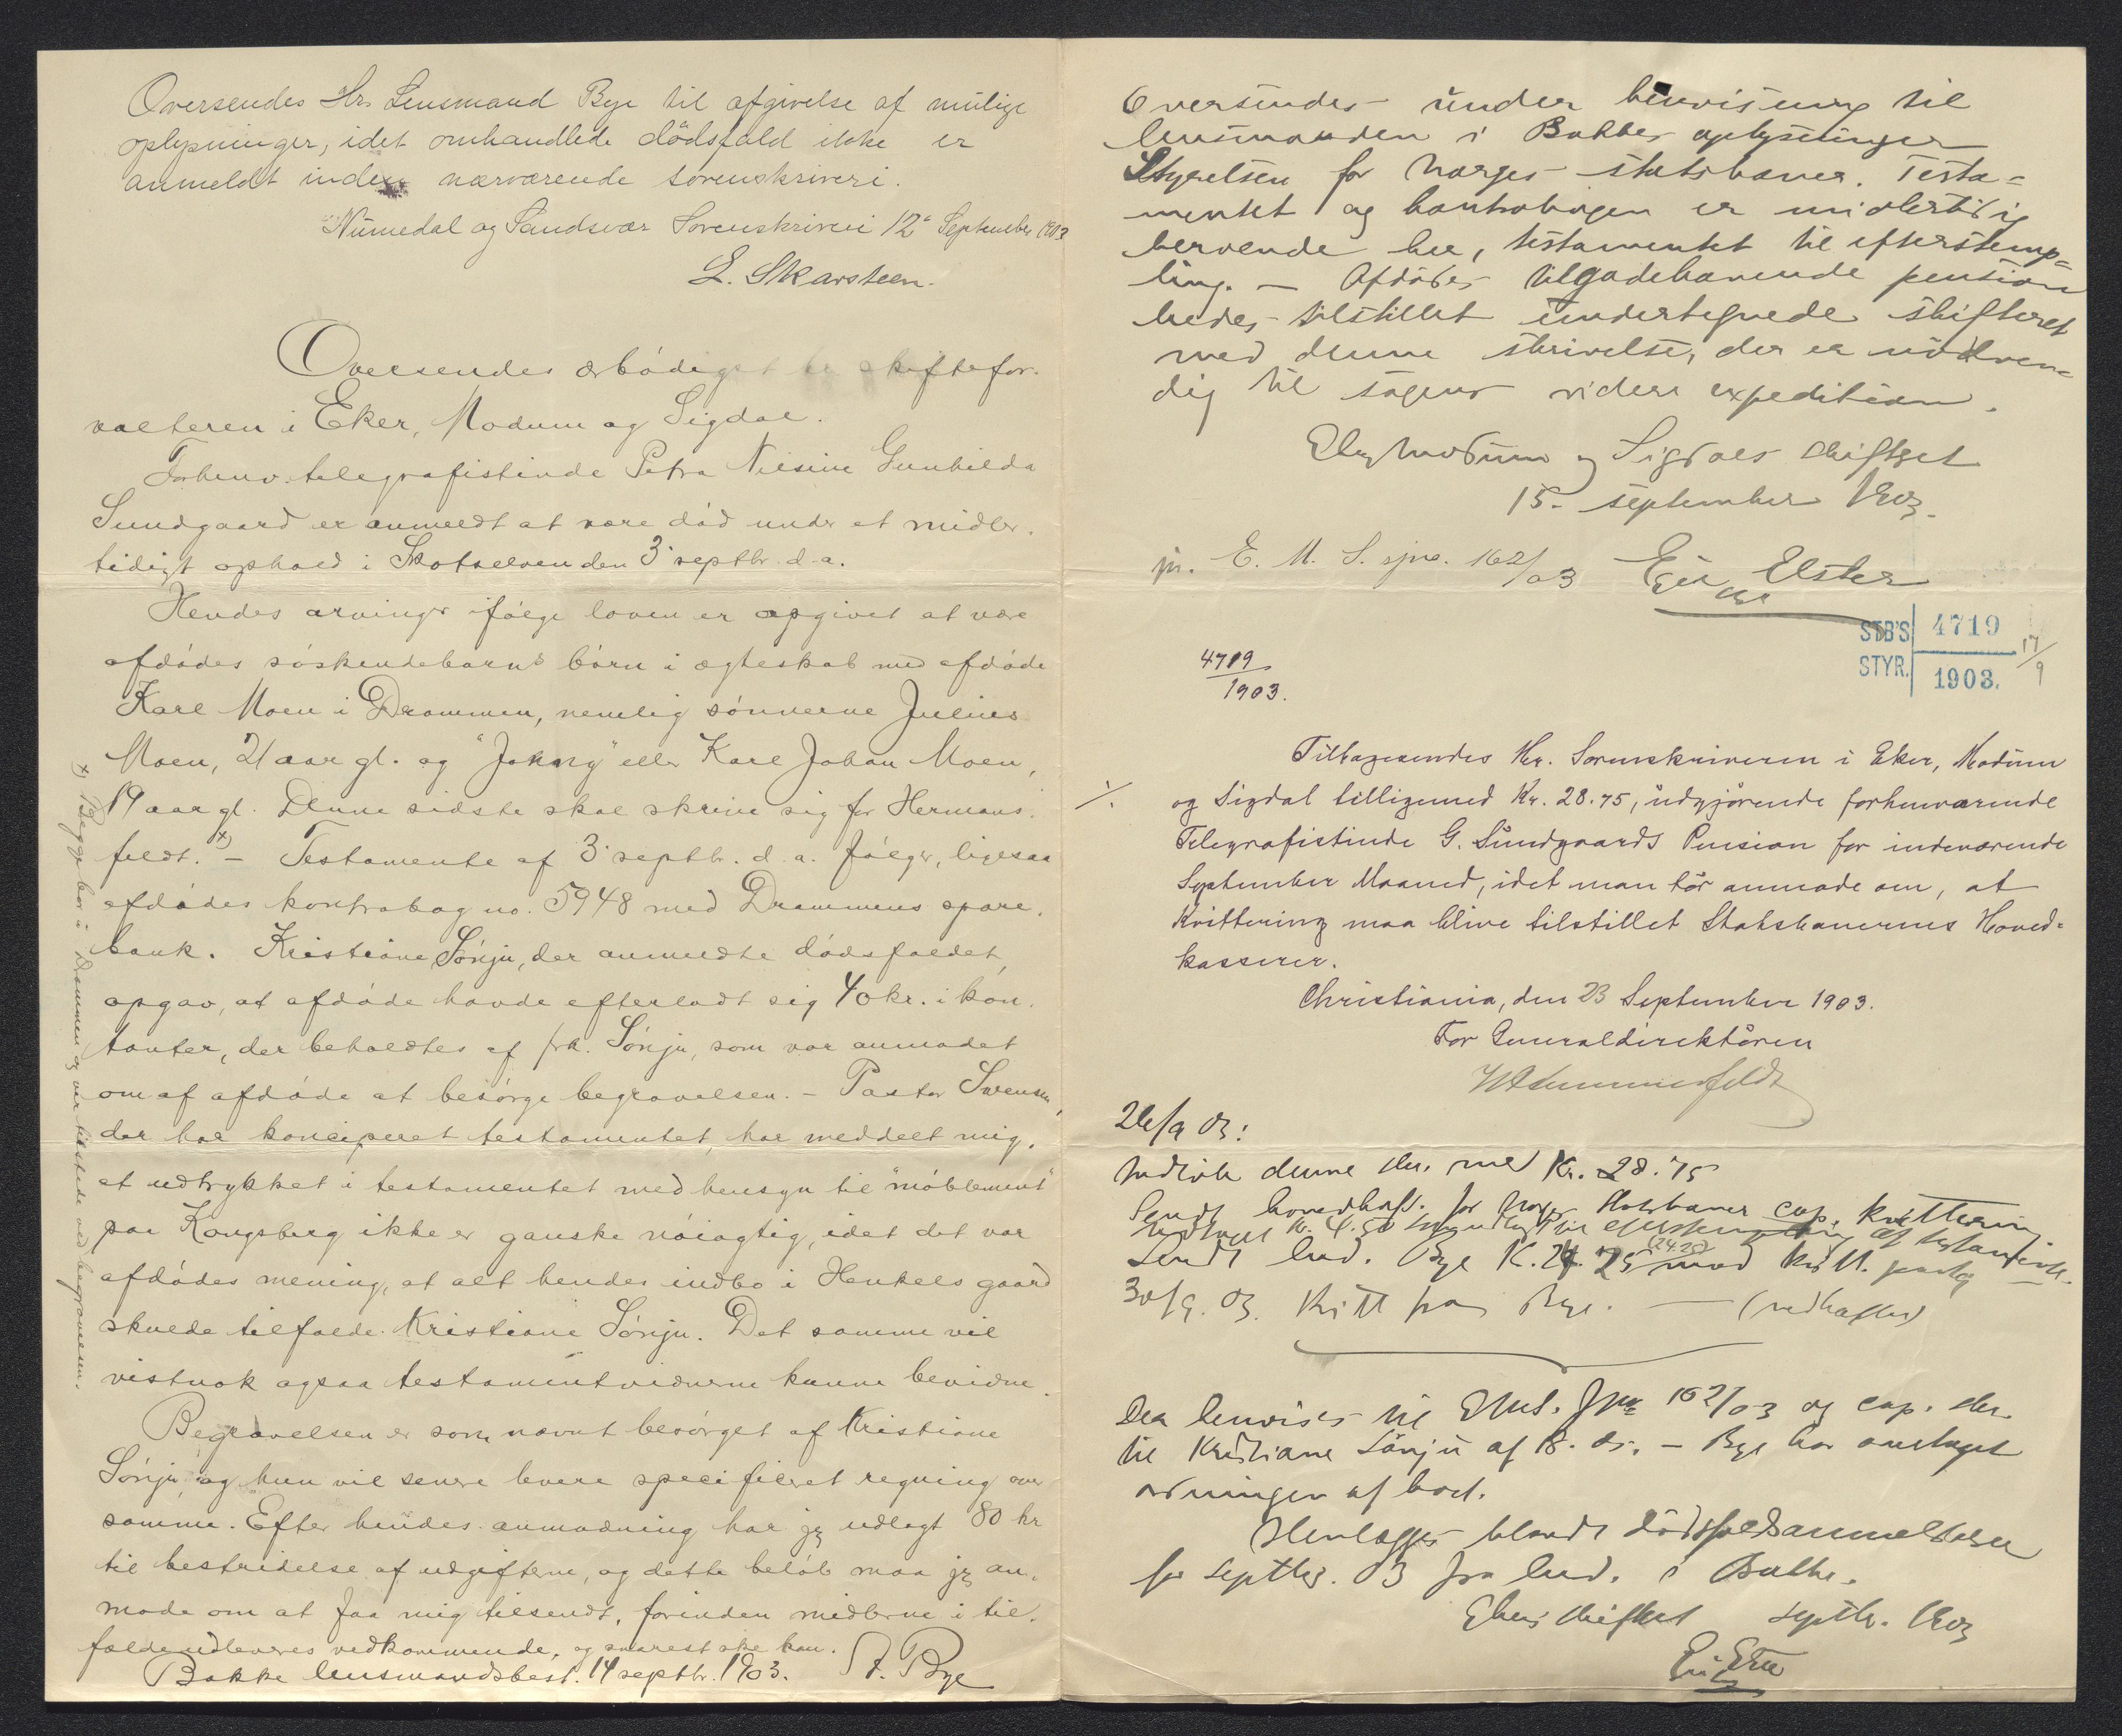 Oversendes Hr. Lensmand Bye til afgivelse af mulige
oplysninger, idet omhandlede dödsfald ikke er
anmeldt inden nærværende sorenskriveri.
Numedal og Sandsvær Sorenskriveri 12te September 1903
L. Skarsteen.
Oversendes ærbödigst hr. skiftefor-
valteren i Eker, Modum og Sigdal.
Forhenv. telegrafistinde Petra Nilsine Gunhilda
Sundgaard er anmeldt at være död under et midler-
tidigt ophold i Skotselven den 3. septbr. d.a.
Hendes arvinger ifölge loven er opgivet at være
afdödes söskendebarns börn i ægteskab med afdöde
Karl Moen i Drammen, nemlig sönnerne Julius
Moen, 21 aar gl. og "Johnny" eller Karl Johan Moen,
19 aar gl. Denne sidste skal skrive sig for Hermans-
feldt. x) – Testamente af 3. septbr. d.a. fölger, ligesaa
afdödes kontrabog no. 5948 med Drammens spare-
bank. Kristiane Sönju, der anmeldte dödsfaldet,
opgav, at afdöde havde efterladt sig 40 kr. i kon-
tanter, der beholdtes af frk. Sönju, som var anmodet
om af afdöde at besörge begravelsen. – Pastor Svensen,
der har konciperet testamentet, har meddelt mig,
at udtrykket i testamentet med hensyn til "möblement"
paa Kongsberg ikke er ganske nöiagtig, idet det var
afdödes mening, at alt hendes indbo i Henkels gaard
skulde tilfalde Kristiane Sönju. Det samme vil
vistnok ogsaa testamentvidnerne kunne bevidne.
Begravelsen er som nævnt besörget af Kristiane
Sönju og hun vil senere levere specificeret regning over
samme. Efter hendes anmodning har jeg udlagt 80 kr
til bestridelse af udgifterne, og dette belöb maa jeg an-
mode om at faa mig tilsendt, forinden midlerne i til-
fælde udleveres vedkommende, og snarest ske kan.
Bakke lensmandsbest. 14 septbr. 1903. A. Bye
x) Begge bor i Drammen og var tilstede ved begravelsen.
Oversendes under henvisning til
lensmanden i Bakkes oplysninger
Styrelsen for Norges statsbaner. Testa-
mentet og kontrabogen er midlertidig
beroende her, testamentet til efterstemp-
ling. – Afdödes tilgodehavende pension
bedes tilstillet undertegnede skifteret
med denne skrivelse, der er nödven-
dig til sagens videre expedition.
Eker, Modum og Sigdals skifteret
15. september 1903.
jn. E. M. S. sjno. 162/03 Elster
STB'S STYR. 4719 1903. 17/9
4719
1903.
Tilbagesendes Hr. Sorenskriveren i Eker, Modum
%. og Sigdal tilligemed Kr. 28.75, udgjörende forhenværende
Telegrafistinde G. Sundgaards Pension for indeværende
September Maaned, idet man tör anmode om, at
Kvittering maa blive tilstillet Statsbanernes Hoved-
kasserer.
Christiania, den 23 September 1903.
For Generaldirektören
26/9 03:
Indkom denne skr. med Kr. 28.75
Sendt hovedkass. for Norges statsbaner cop. kvittering
Kr. 4.50 af
Sendt lnd. Bye K. 24.25 (24.25) mod kvitt.
30/9.03. Kvitt fra Bye. – (vedhæftes)
Der henvises til EMS. Jno 162/03 og cop. skr.
til Kristiane Sönju af 18. ds. – Bye har
ordningen af boet.
Henlægges blandt dödsfaldsanmeldelser
for septbr. 03 fra lnd. i Bakke.
Ekers skifteret septbr. 1903